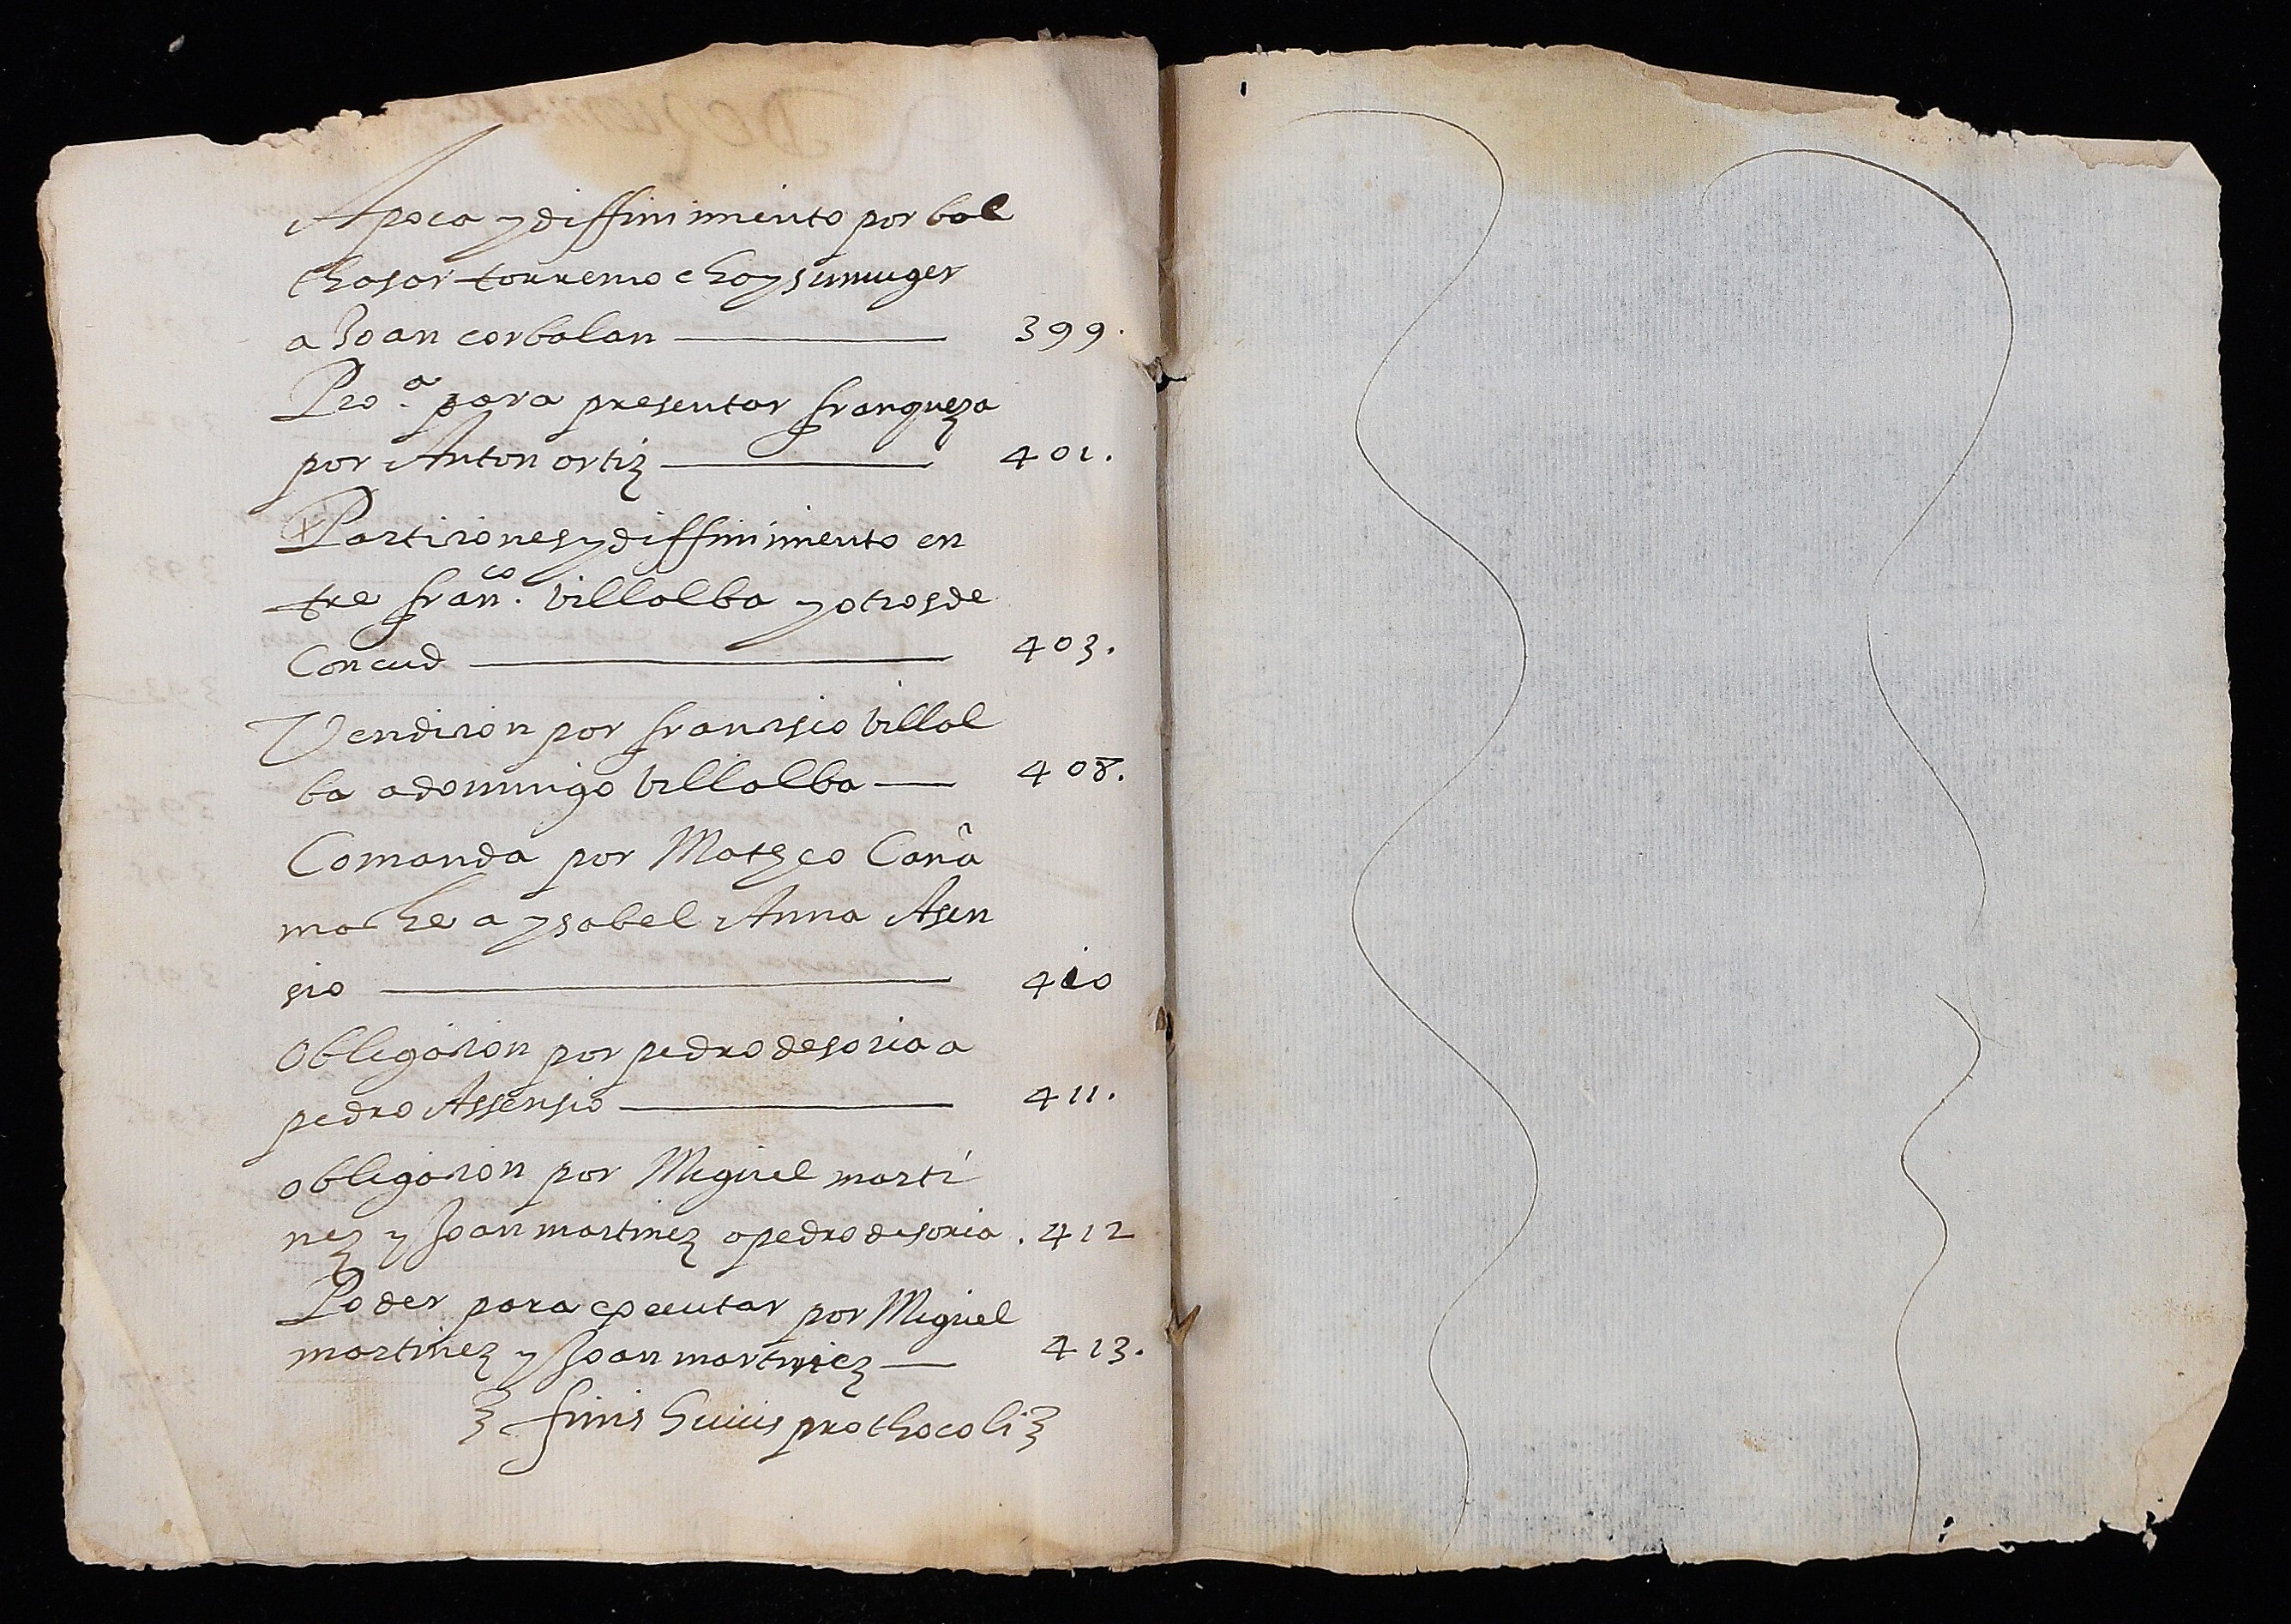 Apoca y diffinimiento por bal
thasar torremocha y su muger
a Joan corbalan 399.
Pro.ª para presentar franqueza
por Anton ortiz 401.
Particiones y diffinimiento en
tre fran.co villalba y otros de
Concud 403.
Vendicion por francisco villal
ba a domingo villalba 408.
Comanda por Matheo Caña
mache a ysabel Anna Asen
sio 410
Obligacion por pedro de soria a
pedro Assensio 411.
obligacion por Miguel marti
nez y Joan martinez a pedro de soria . 412
Poder para executar por Miguel
martinez y Joan martinez 413.
finis huius prothocoli